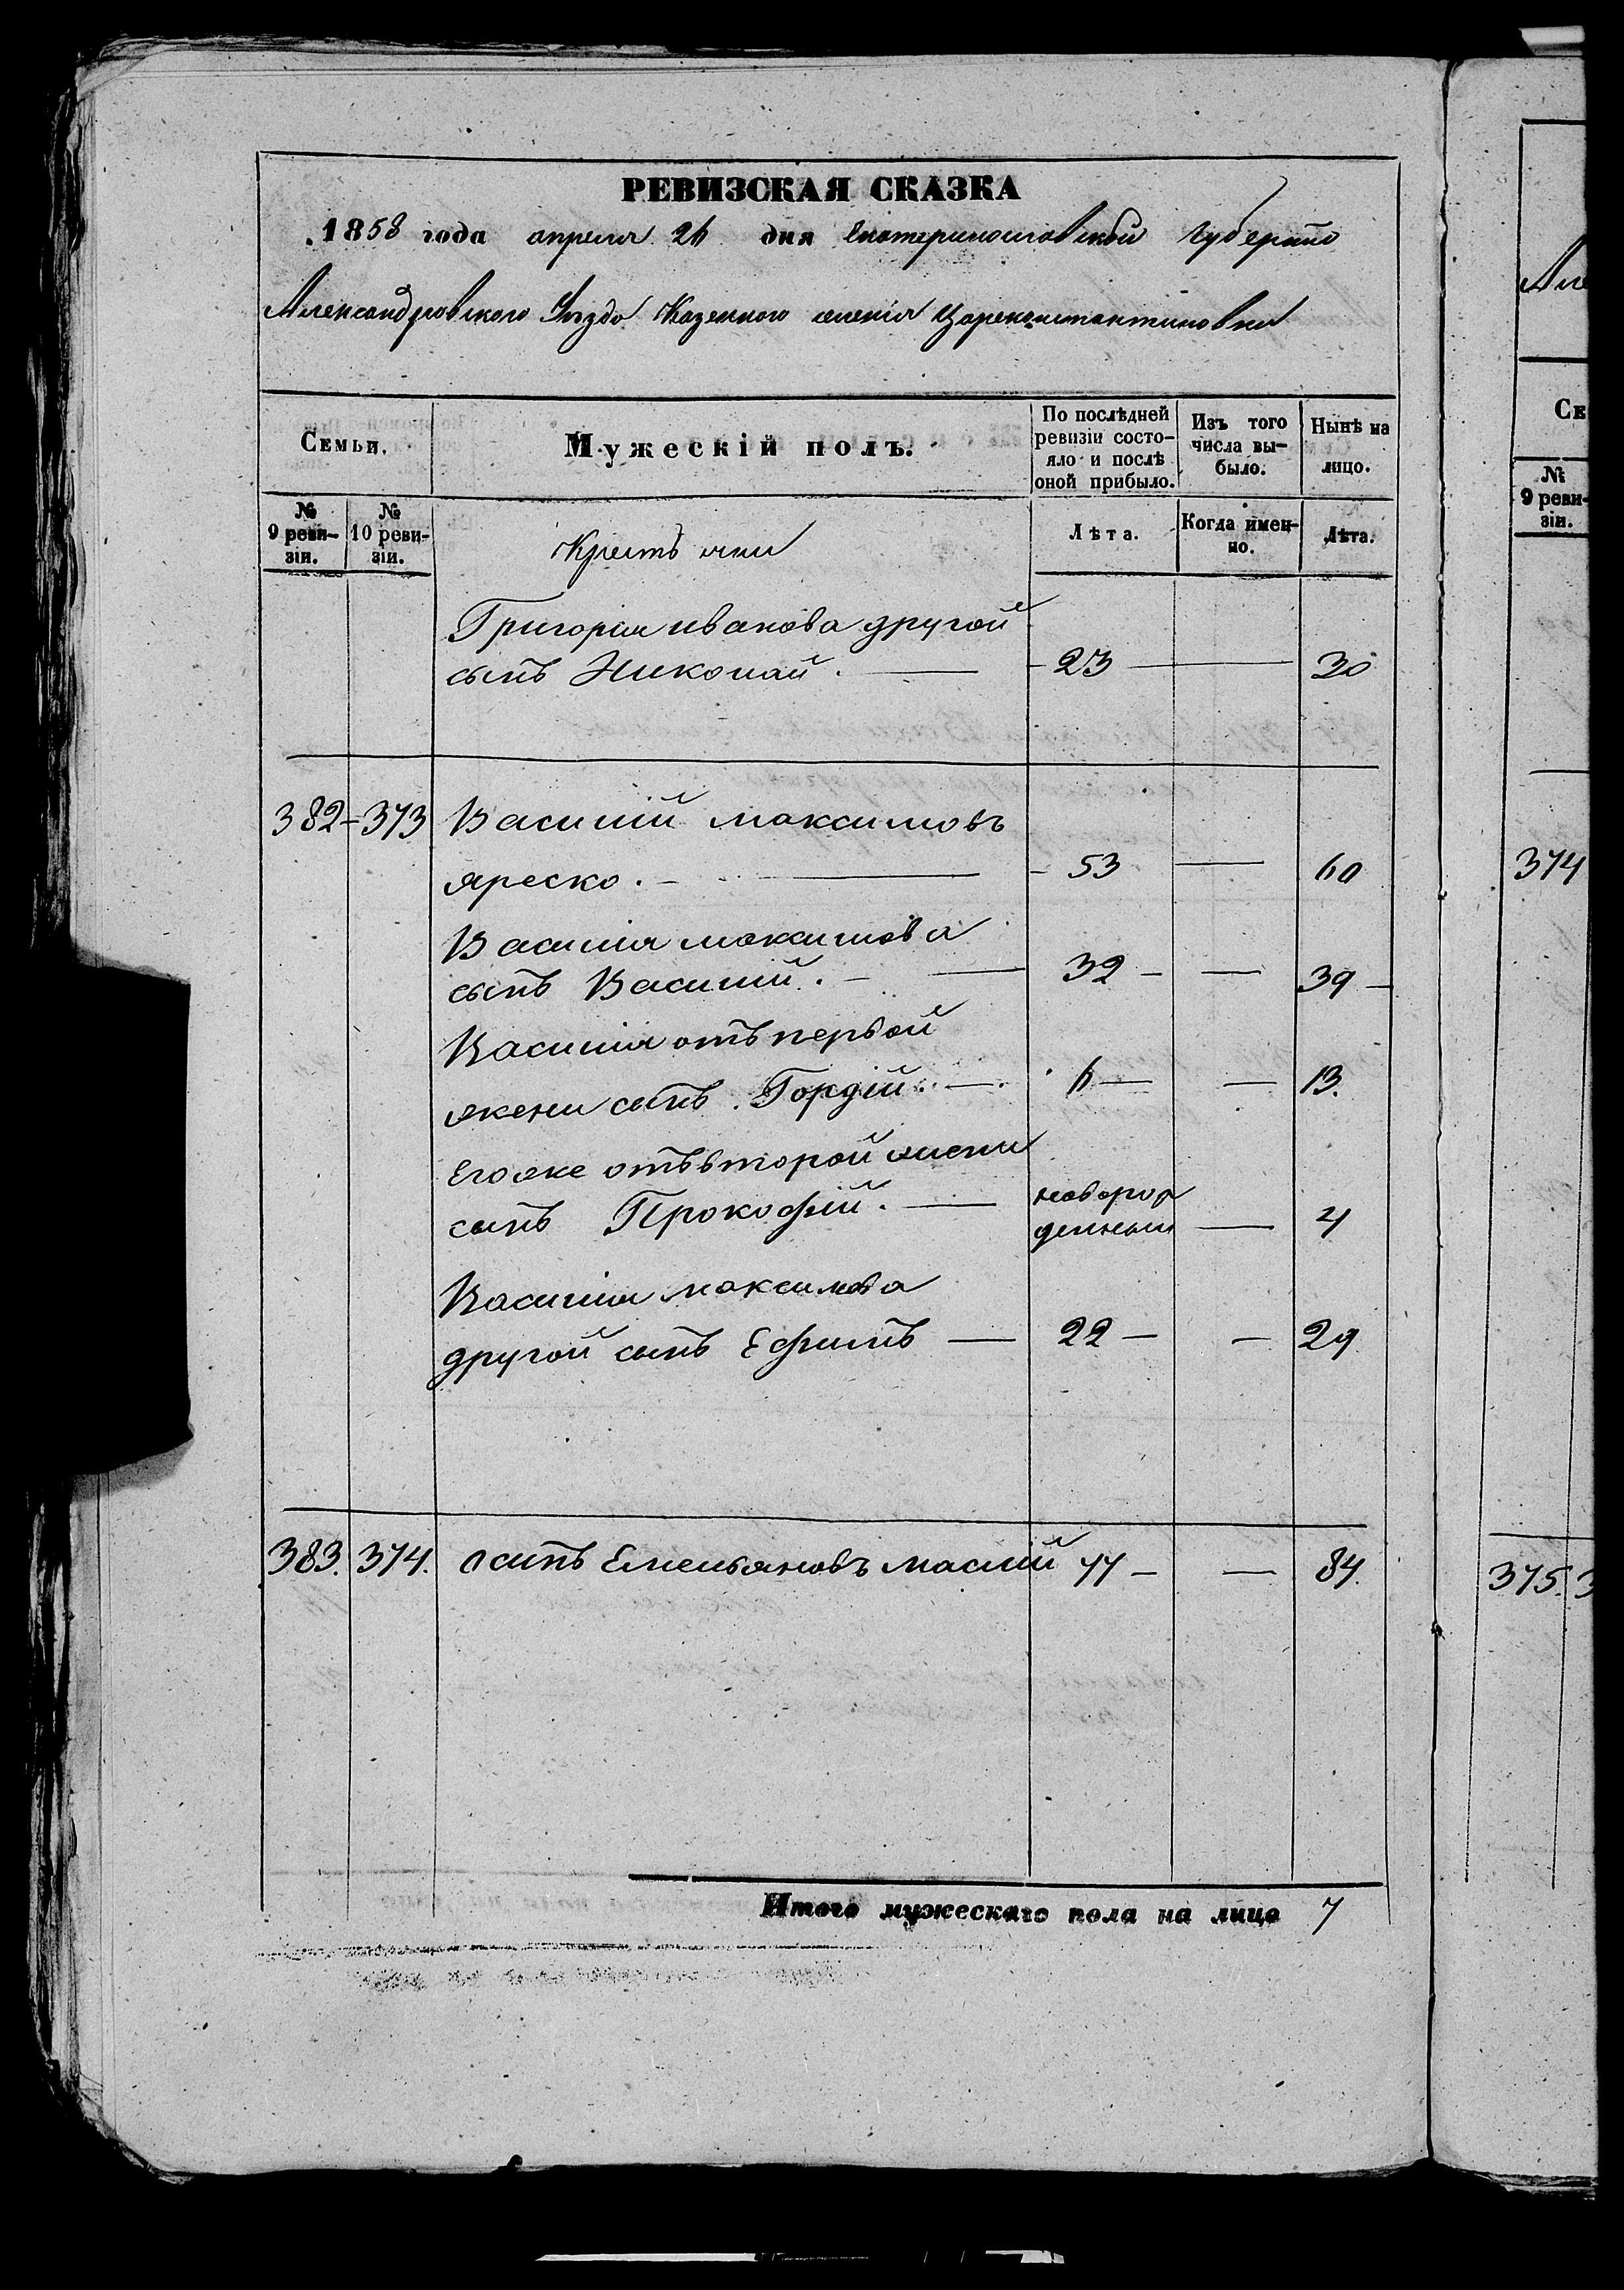 РЕВИЗСКАЯ СКАЗКА
1858 года апреля 26 дня Екатеринославской Губернiи
Александровского Уѣзда Казенного селенiя Цареконстантиновки
Семьи.
Мужескій полъ.
По послѣдней ревизіи состояло и послѣ оной прибыло.
Изъ того числа выбыло.
Нынѣ на лицо.
№ 9 ревизіи.
№ 10 ревизіи.
Крестьяни
Лѣта.
Когда именно.
Лѣта.
Григорія иванова другой
сынъ Николай. — 23 — 30
382 — 373 Василій максимовъ
яреско. — 53 — 60
Василія максимова
сынъ Василій. — 32 — — 39 —
Василія отъ первой
жени сынъ Гордій. — 6 — — 13.
Его же отъ второй жени
сынъ Прокофій. — новорож
денный — 4
Василія максимова
другой сынъ Ефимъ — 22 — — 29
383. 374. осипъ Емельяновъ маслій 77 — — 84.
Итого мужескаго пола на лицо 7
Але
Се
№
9 реви-
зіи.
374
375. 3